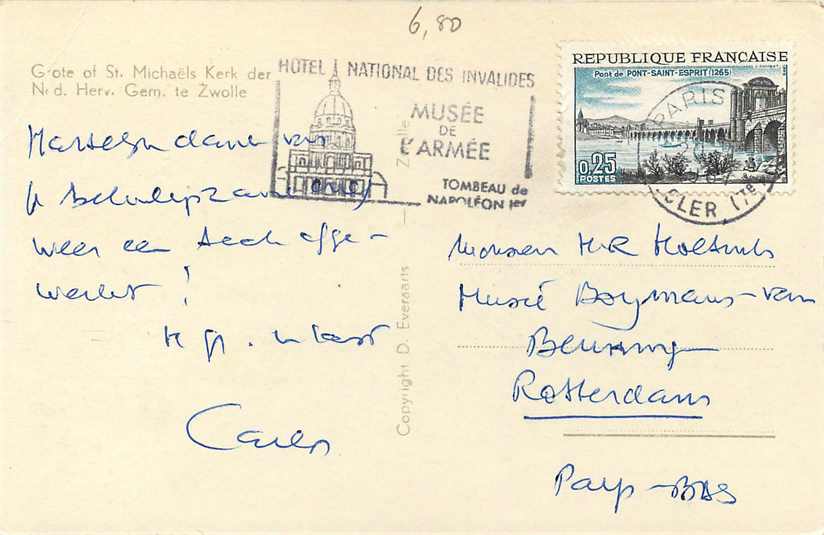 6,80
Grote of St. Michaëls Kerk der
Ned. Herv. Gem. te Zwolle
HOTEL NATIONAL DES INVALIDES
MUSÉE
DE
L'ARMÉE
TOMBEAU de
NAPOLÉON Ier
REPUBLIQUE FRANÇAISE
Pont de PONT-SAINT-ESPRIT (1265)
0,25
POSTES
PARIS
CLER (7e)
Hartelijk dank voor
weer een
werkt!
Carlos
Copyright D. Everaarts — Zwolle
Monsieur H.R. Hoetink
Musée Boymans-van
Beuningen
Rotterdam
Pays-Bas